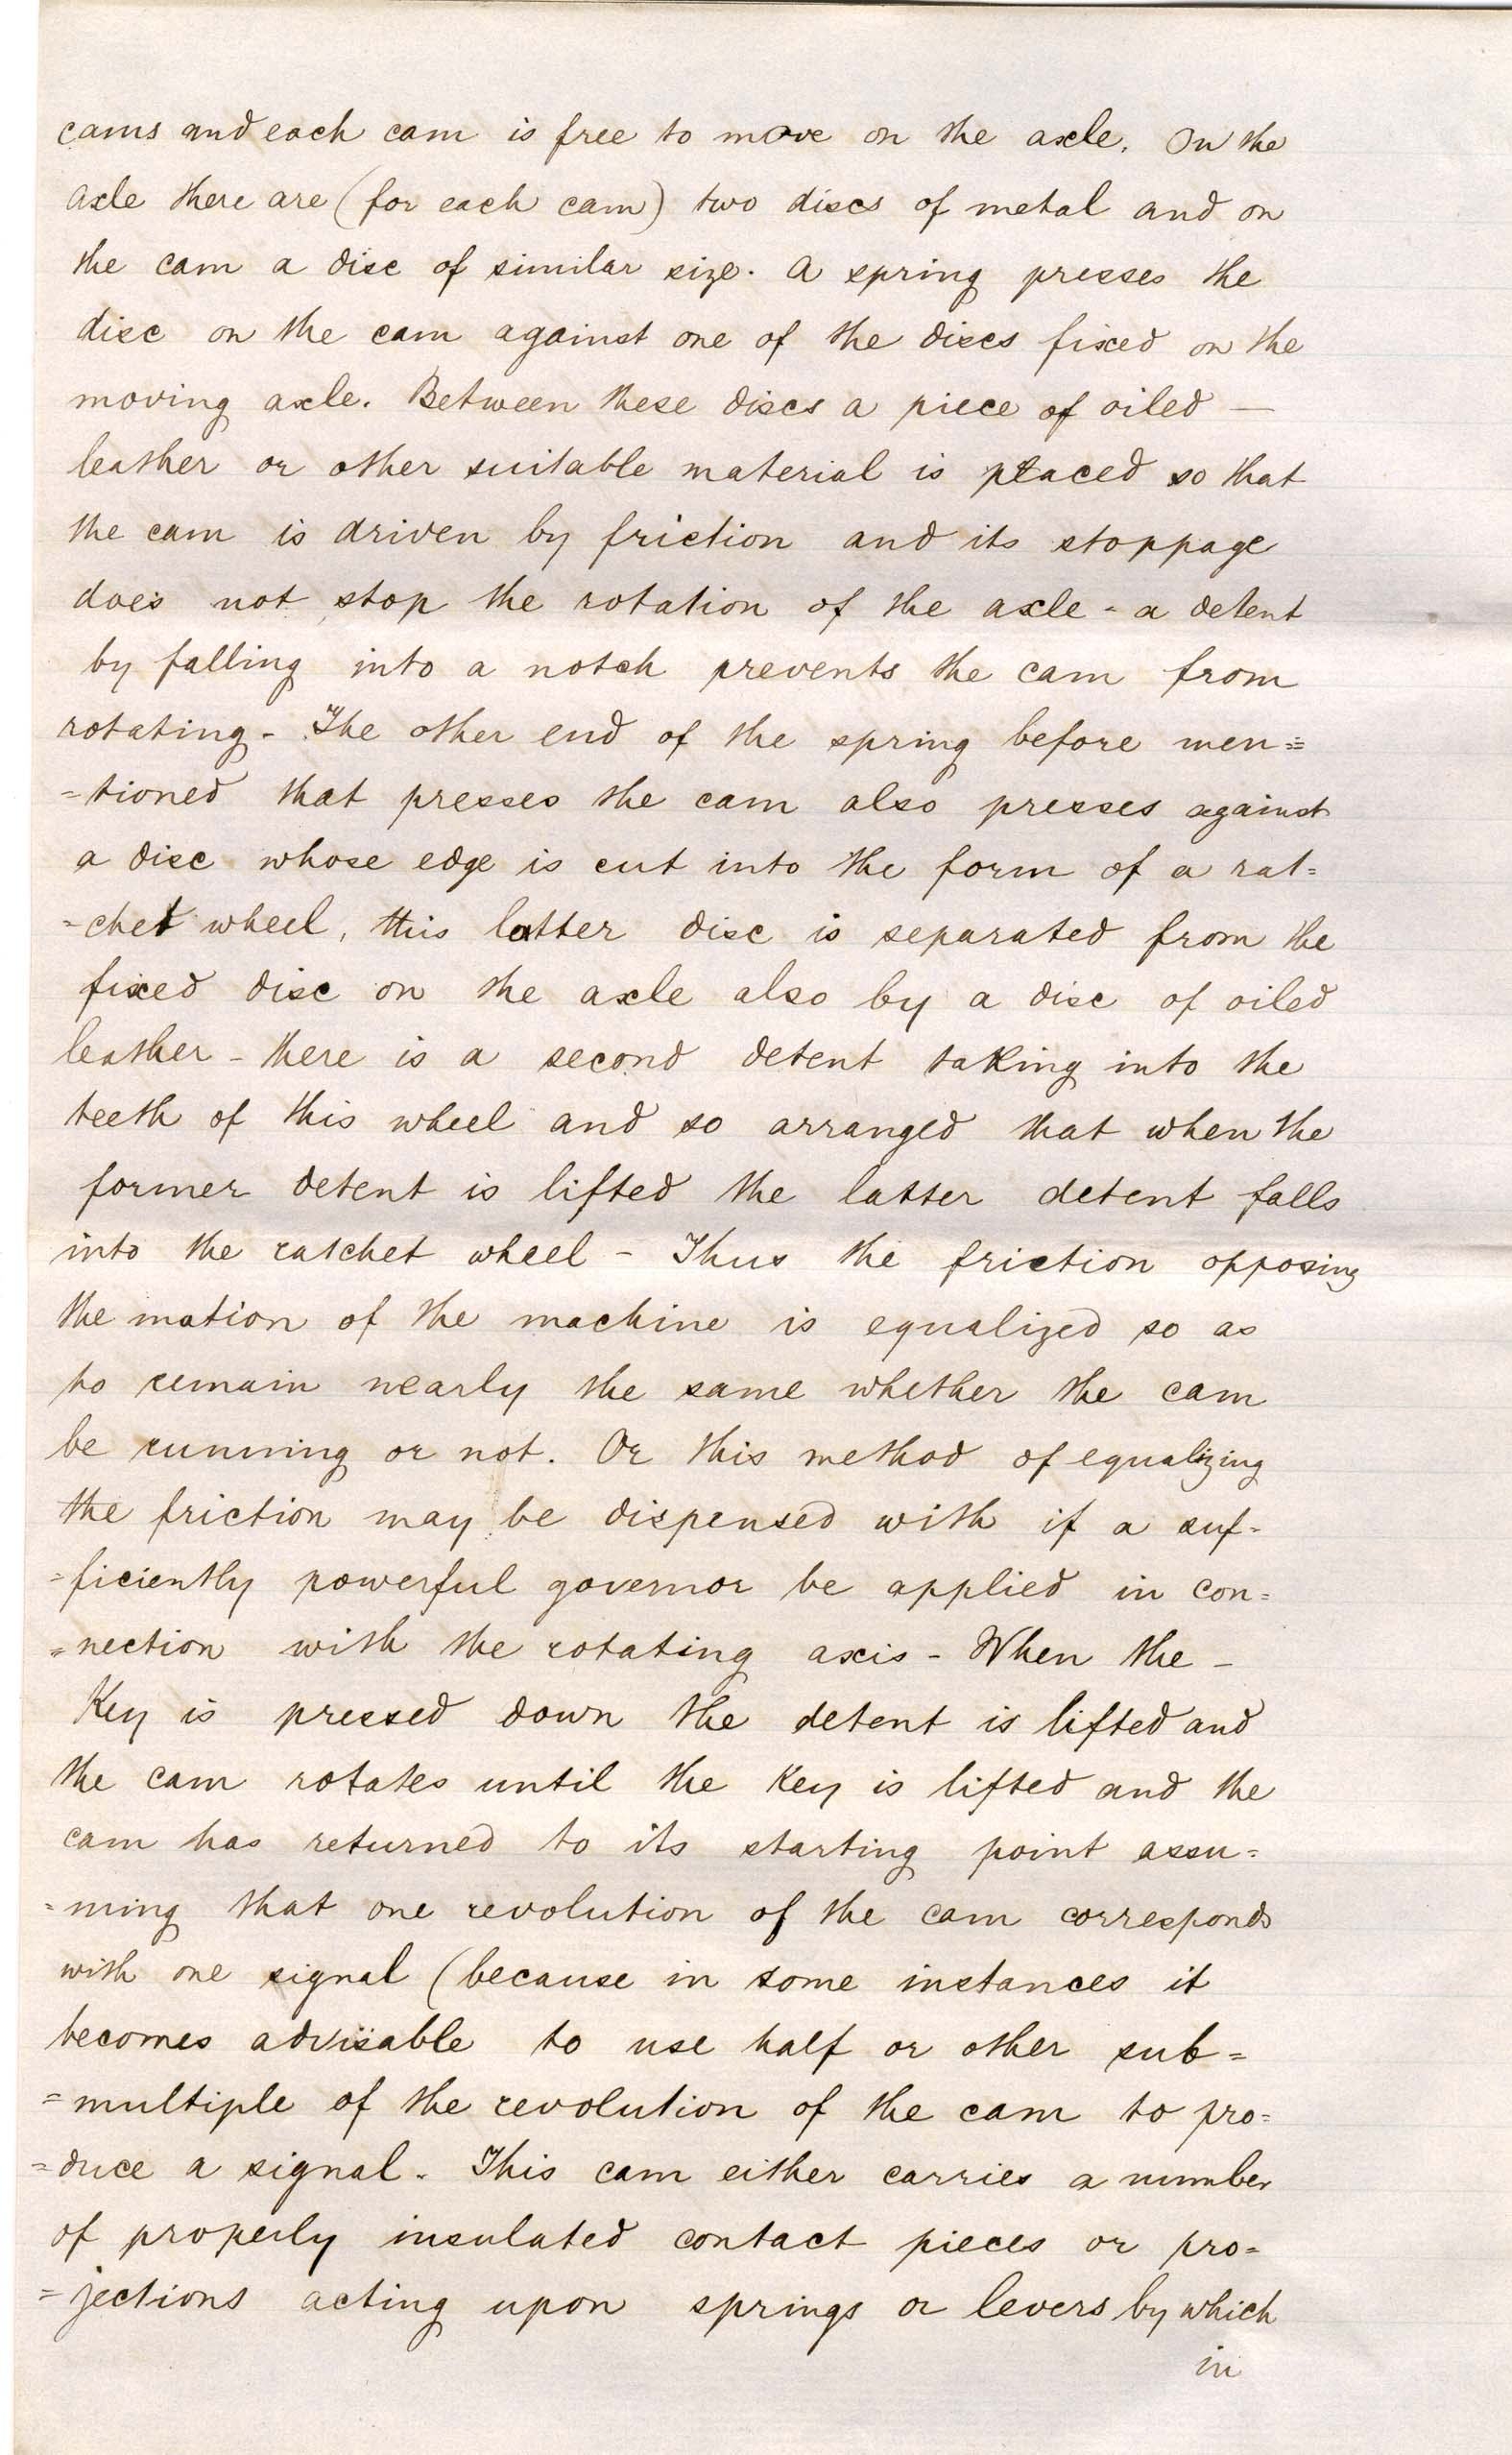 cams and each cam is free to move on the axle. On the
axle there are (for each cam) two discs of metal and on
the cam a disc of similar size. A spring presses the
disc on the cam against one of the discs fixed on the
moving axle. Between these discs a piece of oiled —
leather or other suitable material is placed so that
the cam is driven by friction and its stoppage
does not stop the rotation of the axle - a detent
by falling into a notch prevents the cam from
rotating - The other end of the spring before men=
=tioned that presses the cam also presses against
a disc whose edge is cut into the form of a rat=
=chet wheel, this latter disc is separated from the
fixed disc on the axle also by a disc of oiled
leather - there is a second detent taking into the
teeth of this wheel and so arranged that when the
former detent is lifted the latter detent falls
into the ratchet wheel - Thus the friction opposing
the motion of the machine is equalized so as
to remain nearly the same whether the cam
be running or not. Or this method of equalizing
the friction may be dispensed with if a suf-
=ficiently powerful governor be applied in con=
=nection with the rotating axis - When the -
Key is pressed down the detent is lifted and
the cam rotates until the Key is lifted and the
cam has returned to its starting point assu=
=ming that one revolution of the cam corresponds
with one signal (because in some instances it
becomes advisable to use half or other sub=
=multiple of the revolution of the cam to pro=
=duce a signal. This cam either carries a number
of properly insulated contact pieces or pro=
=jections acting upon springs or levers by which
in